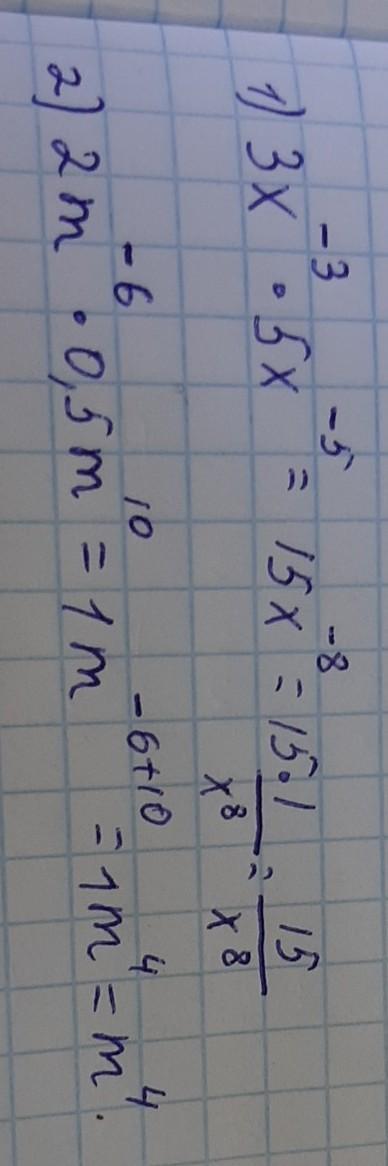 1) 3x⁻³ · 5x⁻⁵ = 15x⁻⁸ = 15·1/x⁸ = 15/x⁸
2) 2m⁻⁶ · 0,5m¹⁰ = 1m⁻⁶⁺¹⁰ = 1m⁴ = m⁴.